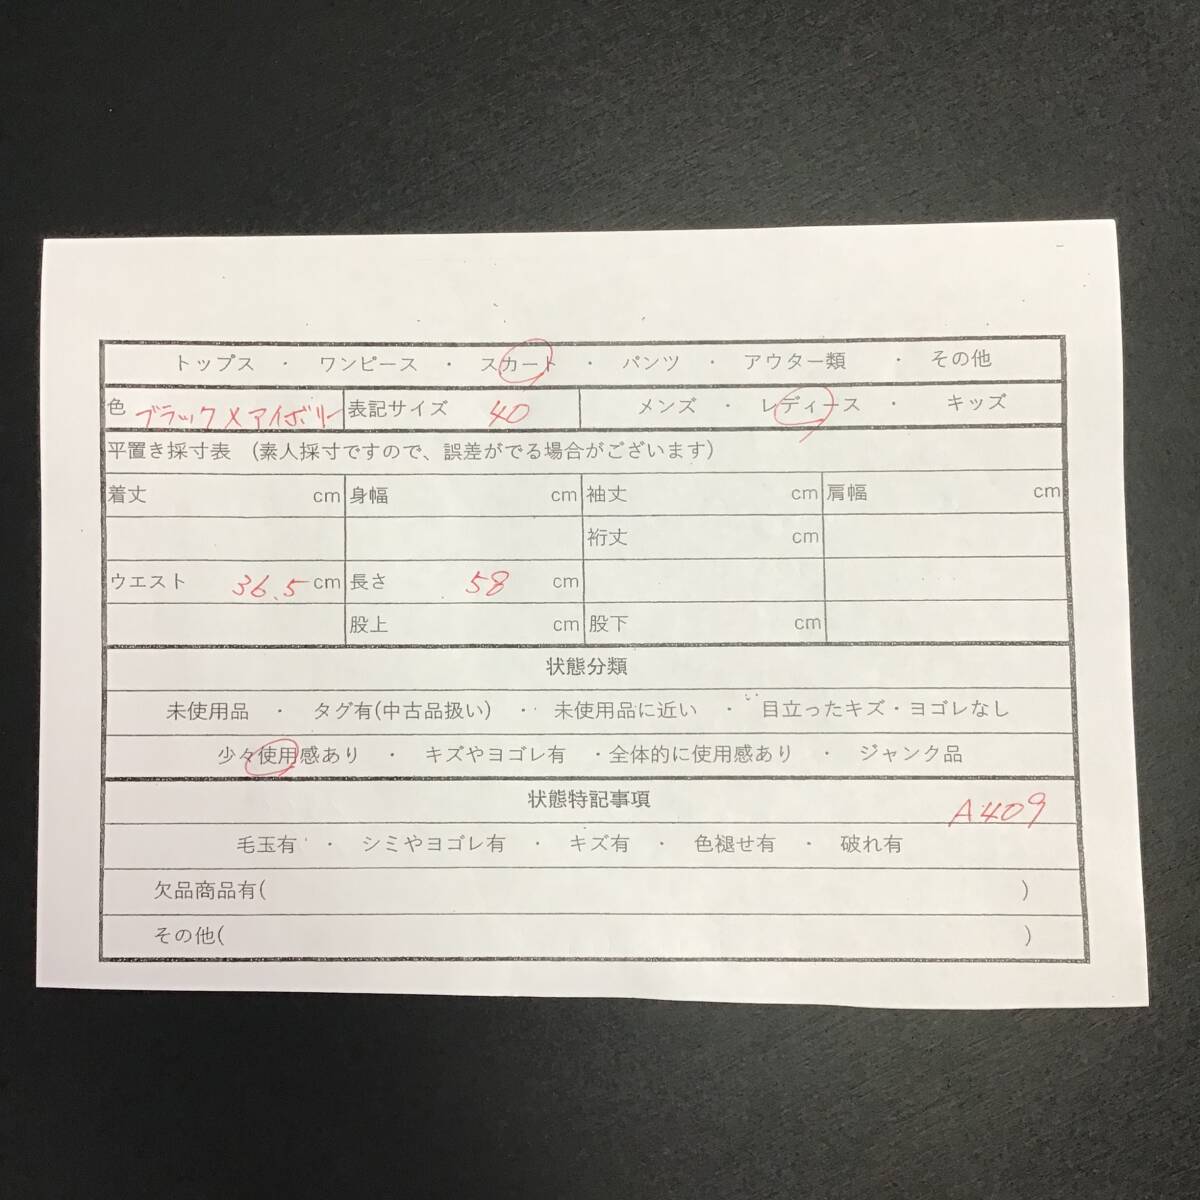 トップス ・ ワンピース ・ スカート ・ パンツ ・ アウター類 ・ その他
色 ブラック×アイボリー 表記サイズ 40 メンズ ・ レディース ・ キッズ
平置き採寸表 (素人採寸ですので、誤差がでる場合がございます)
着丈 cm 身幅 cm 袖丈 cm 肩幅 cm
裄丈 cm
ウエスト 36.5 cm 長さ 58 cm
股上 cm 股下 cm
状態分類
未使用品 ・ タグ有(中古品扱い) ・ 未使用品に近い ・ 目立ったキズ・ヨゴレなし
少々使用感あり ・ キズやヨゴレ有 ・全体的に使用感あり ・ ジャンク品
状態特記事項
A409
毛玉有 ・ シミやヨゴレ有 ・ キズ有 ・ 色褪せ有 ・ 破れ有
欠品商品有( )
その他( )